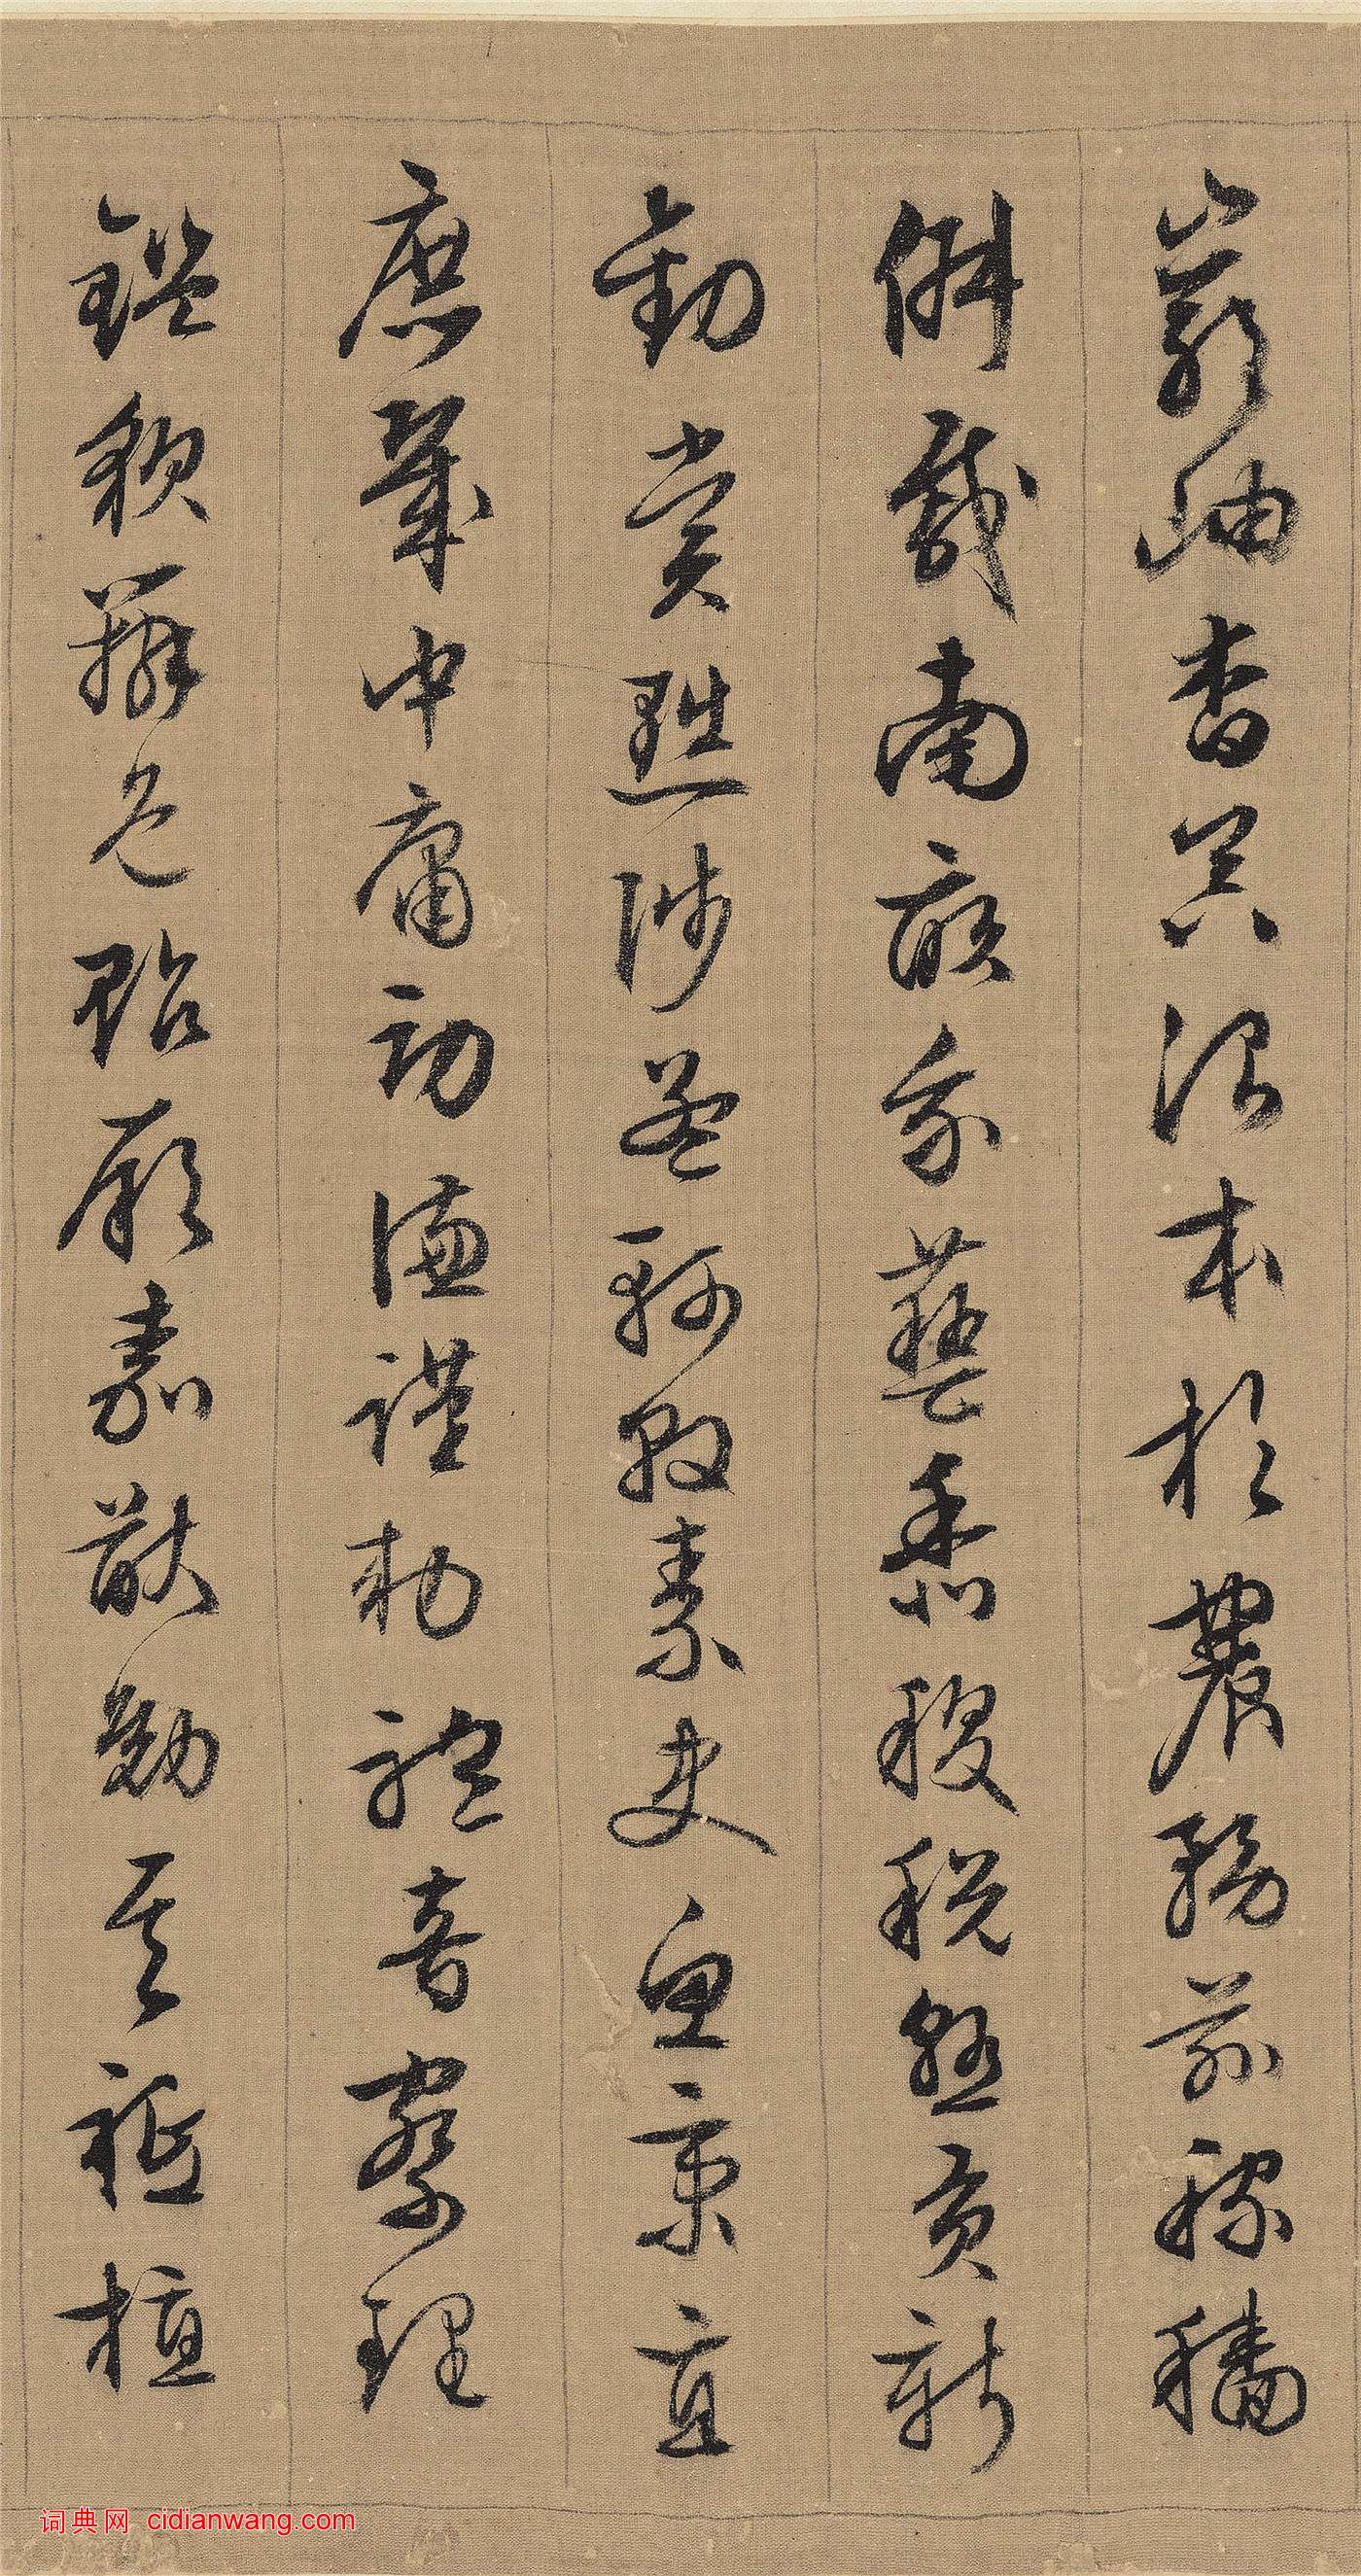 巖岫杳冥治本於農務茲稼穡
俶載南畝我藝黍稷稅熟貢新
勸賞黜陟孟軻敦素史魚秉直
庶幾中庸勞謙謹敕聆音察理
鑑貌辨色貽厥嘉猷勉其祗植
词典网 cidianwang.com